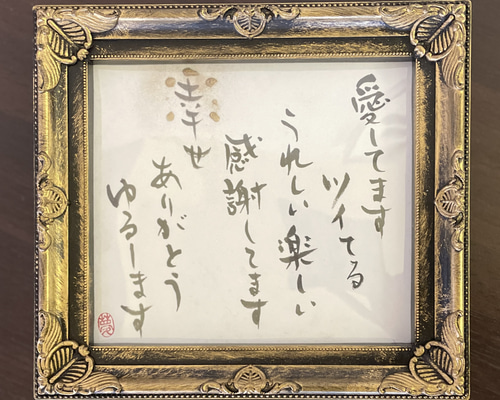 愛してます
ツイてる
うれしい楽しい
感謝してます
幸せ
ありがとう
ゆるします